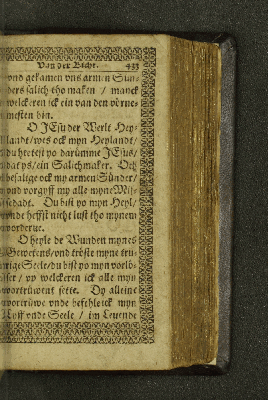 Van der Bicht. 433
vnd gekamen vns armen Sün-
ders salich tho maken / manck
welckeren ick ein van den vörne-
mesten bin.
O JEsu der Werlt Hey-
landt / wes ock myn Heylandt /
du hetest yo darümme JEsus /
dat ys / ein Salichmaker. Och
besalige ock my armen Sünder /
vnd vorgyff my alle myne Mis-
sedadt. Du bist yo myn Heyl /
vnde heffst nicht lust tho mynem
vorderue.
O heyle de Wunden mynes
Gewetens / vnd tröste myne tru-
rige Seele / du bist yo myn vorlö-
ser / vp welckeren ick alle myn
vortrüwent sette. Dy alleine
vortrüwe vnde befehle ick myn
Lyff vnde Seele / im Leuende